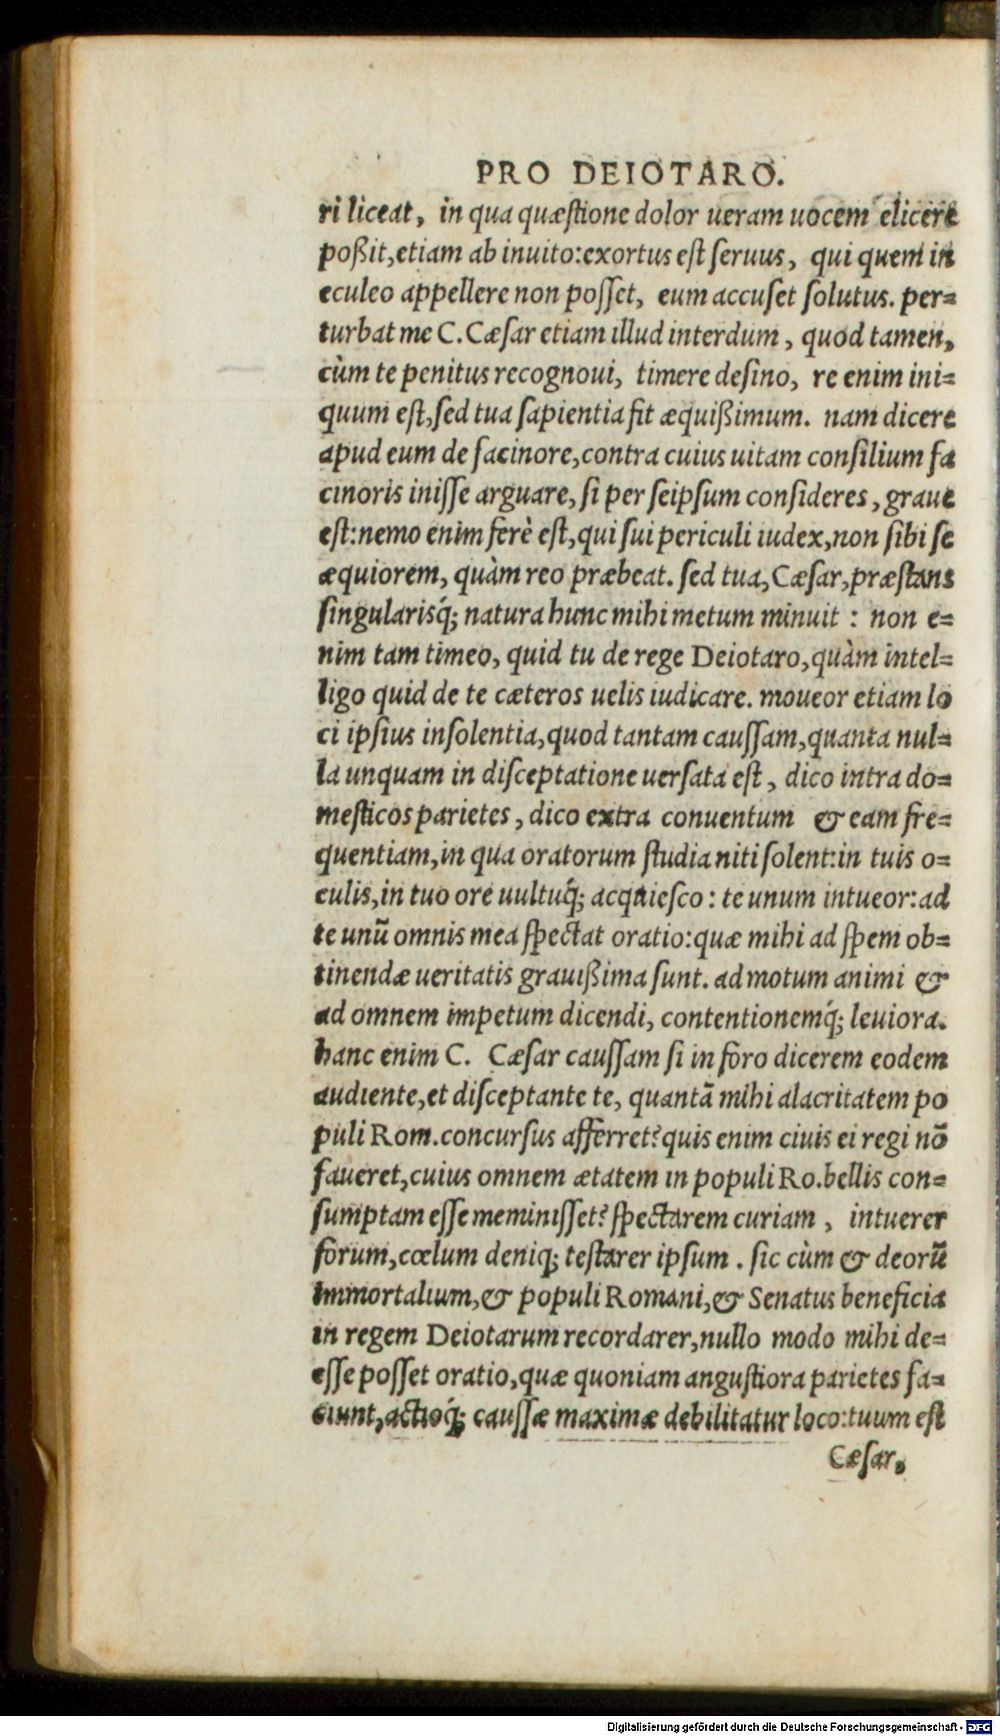 PRO DEIOTARO.
ri liceat, in qua quæſtione dolor ueram uocem elicere
poßit, etiam ab inuito: exortus eſt ſeruus, qui quem in
eculeo appellere non poſſet, eum accuſet ſolutus. per=
turbat me C. Cæſar etiam illud interdum, quod tamen,
cùm te penitus recognoui, timere deſino, re enim ini=
quum eſt, ſed tua ſapientia fit æquißimum. nam dicere
apud eum de facinore, contra cuius uitam conſilium fa
cinoris iniſſe arguare, ſi per ſeipſum conſideres, graue
eſt: nemo enim ferè eſt, qui ſui periculi iudex, non ſibi ſe
æquiorem, quàm reo præbeat. ſed tua, Cæſar, præſtans
ſingularisq́; natura hunc mihi metum minuit : non e=
nim tam timeo, quid tu de rege Deiotaro, quàm intel=
ligo quid de te cæteros uelis iudicare. moueor etiam lo
ci ipſius inſolentia, quod tantam cauſſam, quanta nul=
la unquam in diſceptatione uerſata eſt, dico intra do=
meſticos parietes, dico extra conuentum & eam fre=
quentiam, in qua oratorum ſtudia niti ſolent: in tuis o=
culis, in tuo ore uultuq́; acquieſco : te unum intueor: ad
te unū omnis mea ſpectat oratio: quæ mihi ad ſpem ob=
tinendæ ueritatis grauißima ſunt. ad motum animi &
ad omnem impetum dicendi, contentionemq́; leuiora.
hanc enim C. Cæſar cauſſam ſi in foro dicerem eodem
audiente, et diſceptante te, quantā mihi alacritatem po
puli Rom. concurſus afferret? quis enim ciuis ei regi nō
faueret, cuius omnem ætatem in populi Ro. bellis con=
ſumptam eſſe meminiſſet? ſpectarem curiam, intuerer
forum, cœlum deniq; teſtarer ipſum . ſic cùm & deorū
immortalium, & populi Romani, & Senatus beneficia
in regem Deiotarum recordarer, nullo modo mihi de=
eſſe poſſet oratio, quæ quoniam anguſtiora parietes fa=
ciunt, actioq́; cauſſæ maximæ debilitatur loco: tuum eſt
Cæſar,
Digitalisierung gefördert durch die Deutsche Forschungsgemeinschaft - DFG